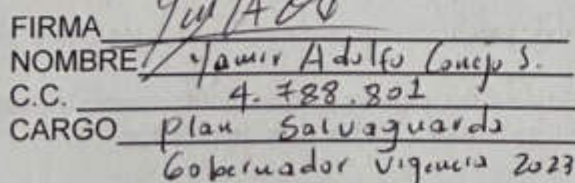 FIRMA
NOMBRE Yamir Adolfo Conejo S.
C.C. 4.788.801
CARGO Plan Salvaguarda
Gobernador vigencia 2023